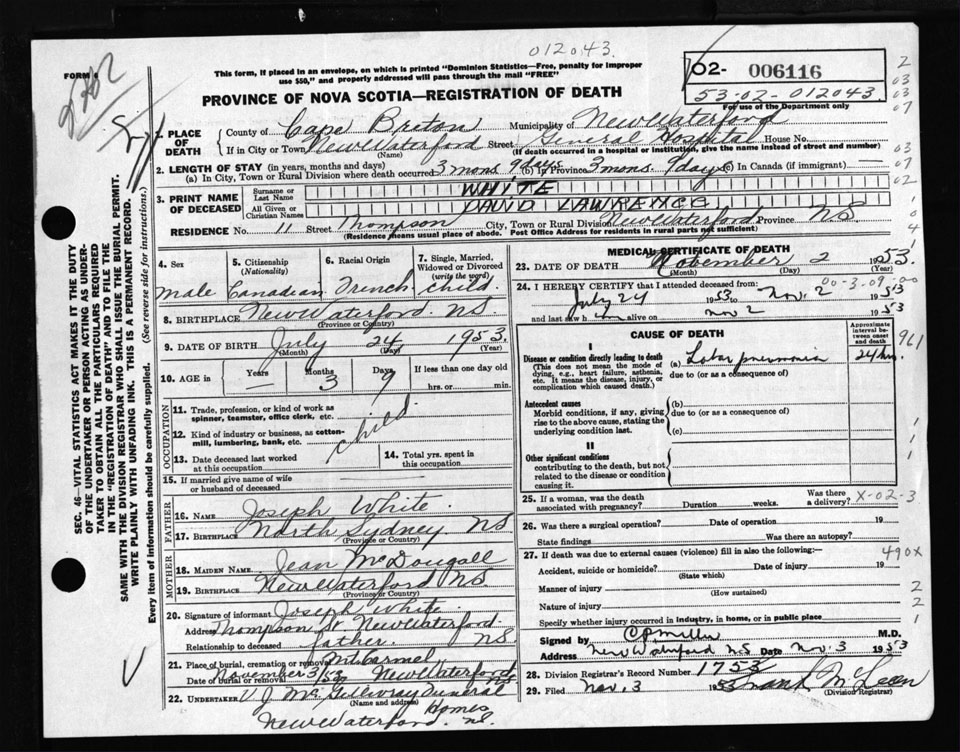 012043.
FORM 6
This form, if placed in an envelope, on which is printed "Dominion Statistics—Free, penalty for improper use $50," and properly addressed will pass through the mail "FREE"
PROVINCE OF NOVA SCOTIA—REGISTRATION OF DEATH
02- 006116
53-02-012043.
For use of the Department only
1. PLACE OF DEATH
County of Cape Breton Municipality of New Waterford
If in City or Town New Waterford Street General Hospital House No.
(Name) (If death occurred in a hospital or institution, give the name instead of street and number)
2. LENGTH OF STAY (in years, months and days)
(a) In City, Town or Rural Division where death occurred 3 mons 9 days (b) In Province 3 mons. 9 days (c) In Canada (if immigrant)
3. PRINT NAME OF DECEASED
Surname or Last Name WHITE
All Given or Christian Names DAVID LAWRENCE
RESIDENCE No. 11 Street Thompson City, Town or Rural Division New Waterford Province NS
(Residence means usual place of abode. Post Office Address for residents in rural parts not sufficient)
4. Sex male
5. Citizenship (Nationality) Canadian
6. Racial Origin French
7. Single, Married, Widowed or Divorced (write the word) child.
8. BIRTHPLACE New Waterford. NS.
(Province or Country)
9. DATE OF BIRTH July 24 1953
(Month) (Day) (Year)
10. AGE in Years — Months 3 Days 9 If less than one day
hrs. or min.
OCCUPATION
11. Trade, profession, or kind of work as spinner, teamster, office clerk, etc.
12. Kind of industry or business, as cotton-mill, lumbering, bank, etc.
child
13. Date deceased last worked at this occupation
14. Total yrs. spent in this occupation
15. If married give name of wife or husband of deceased
FATHER
16. NAME Joseph White
17. BIRTHPLACE North Sydney NS
(Province or Country)
MOTHER
18. MAIDEN NAME Jean McDougall
19. BIRTHPLACE New Waterford NS
(Province or Country)
20. Signature of informant Joseph White.
Address Thompson St. New Waterford. NS
Relationship to deceased father.
21. Place of burial, cremation or removal Mt. Carmel
Date of burial or removal November 3/53 New Waterford NS
22. UNDERTAKER V J McGillivray Funeral Homes
(Name and address)
New Waterford. NS.
MEDICAL CERTIFICATE OF DEATH
23. DATE OF DEATH November 2 1953.
(Month) (Day) (Year)
24. I HEREBY CERTIFY that I attended deceased from:
July 24 1953 to Nov. 2 1953
and last saw him alive on Nov 2 1953
CAUSE OF DEATH
Approximate interval between onset and death
I
Disease or condition directly leading to death
(This does not mean the mode of dying, e.g., heart failure, asthenia, etc. It means the disease, injury, or complication which caused death.)
(a) Lobar pneumonia 24 hrs.
due to (or as a consequence of)
Antecedent causes
Morbid conditions, if any, giving rise to the above cause, stating the underlying condition last.
(b)
due to (or as a consequence of)
(c)
II
Other significant conditions
contributing to the death, but not related to the disease or condition causing it.
25. If a woman, was the death associated with pregnancy? Duration weeks. Was there a delivery?
X-02-3
26. Was there a surgical operation? Date of operation 19
State findings Was there an autopsy?
27. If death was due to external causes (violence) fill in also the following:
490X
Accident, suicide or homicide? Date of injury 19
(State which)
Manner of injury
(How sustained)
Nature of injury
Specify whether injury occurred in industry, in home, or in public place
Signed by C P Miller M.D.
Address New Waterford N.S Date Nov. 3 1953
28. Division Registrar's Record Number 1753
29. Filed Nov. 3 1953 Frank McLean
(Division Registrar)
SEC. 46—VITAL STATISTICS ACT MAKES IT THE DUTY OF THE UNDERTAKER OR PERSON ACTING AS UNDERTAKER TO OBTAIN ALL THE PARTICULARS REQUIRED IN THE "REGISTRATION OF DEATH" AND TO FILE THE SAME WITH THE DIVISION REGISTRAR WHO SHALL ISSUE THE BURIAL PERMIT.
WRITE PLAINLY WITH UNFADING INK. THIS IS A PERMANENT RECORD.
Every item of information should be carefully supplied. (See reverse side for instructions.)